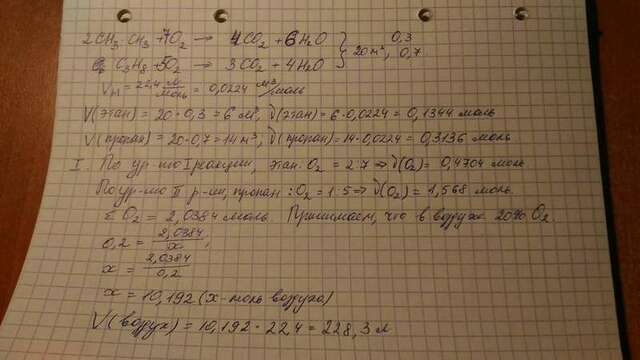 2CH₃·CH₃ + 7O₂ → 4CO₂ + 6H₂O } 0,3
C₃H₈ + 5O₂ → 3CO₂ + 4H₂O } 20 м³, 0,7
Vм = 22,4 л/моль = 0,0224 м³/моль
V(этан) = 20·0,3 = 6 м³, ν(этан) = 6·0,0224 = 0,1344 моль
V(пропан) = 20·0,7 = 14 м³, ν(пропан) = 14·0,0224 = 0,3136 моль
I. По ур-ию I реакции, этан: O₂ = 2:7 ⇒ ν(O₂) = 0,4704 моль
По ур-ию II р-ии, пропан : O₂ = 1:5 ⇒ ν(O₂) = 1,568 моль.
Σ O₂ = 2,0384 моль. Принимаем, что в воздухе 20% O₂.
0,2 = 2,0384/x ;
x = 2,0384/0,2
x = 10,192 (x - моль воздуха)
V(воздух) = 10,192 · 22,4 = 228,3 л